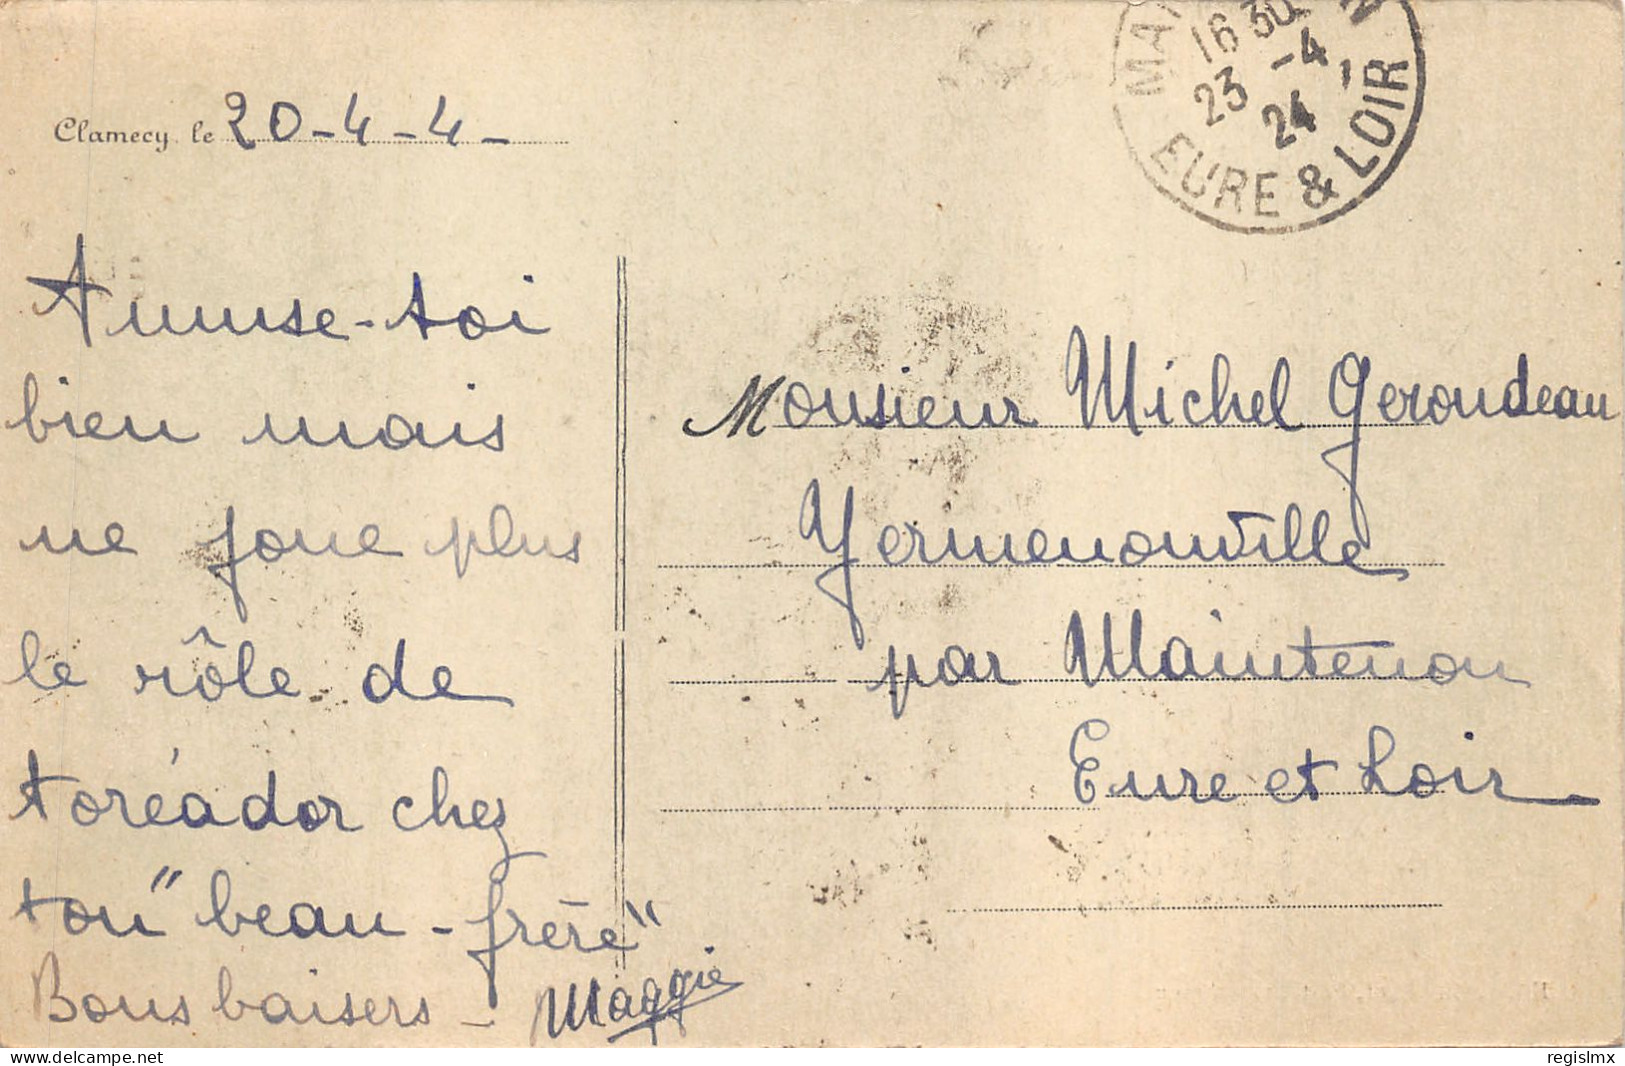 Clamecy, le 20-4-4-
16 30
23 -4
24
EURE & LOIR
Amuse-toi
bien mais
ne joue plus
le rôle de
toréador chez
ton "beau-frère"
Bons baisers - Maggie
Monsieur Michel Gerondeau
Yermenonville
par Maintenon
Eure et Loir
delcampe.net
regislmx